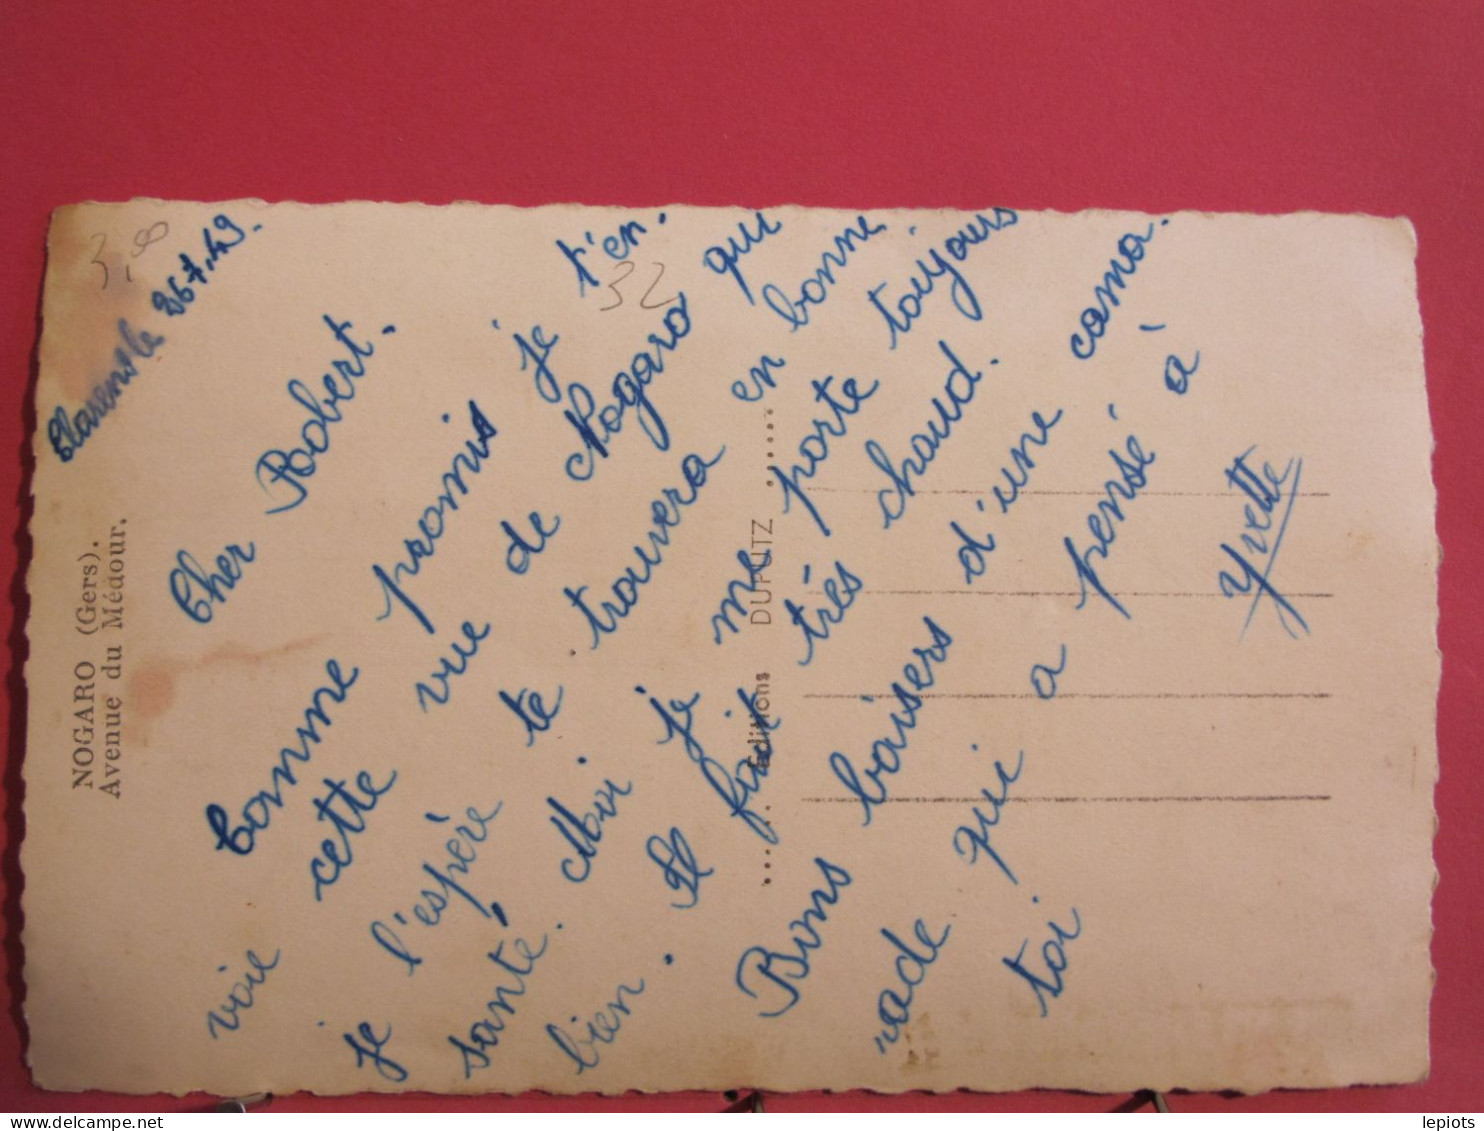 3,00
Clarens le 26.7.49.
Cher Robert.
Comme promis je t'en-
voie cette vue de Nogaro qui
je l'espère te trouvera en bonne
santé. Moi je me porte toujours
bien. Il fait très chaud.
Bons baisers d'une cama-
rade qui a pensé à
toi
Yvette
32
NOGARO (Gers).
Avenue du Médour.
Editions DUPUTZ
lepiots